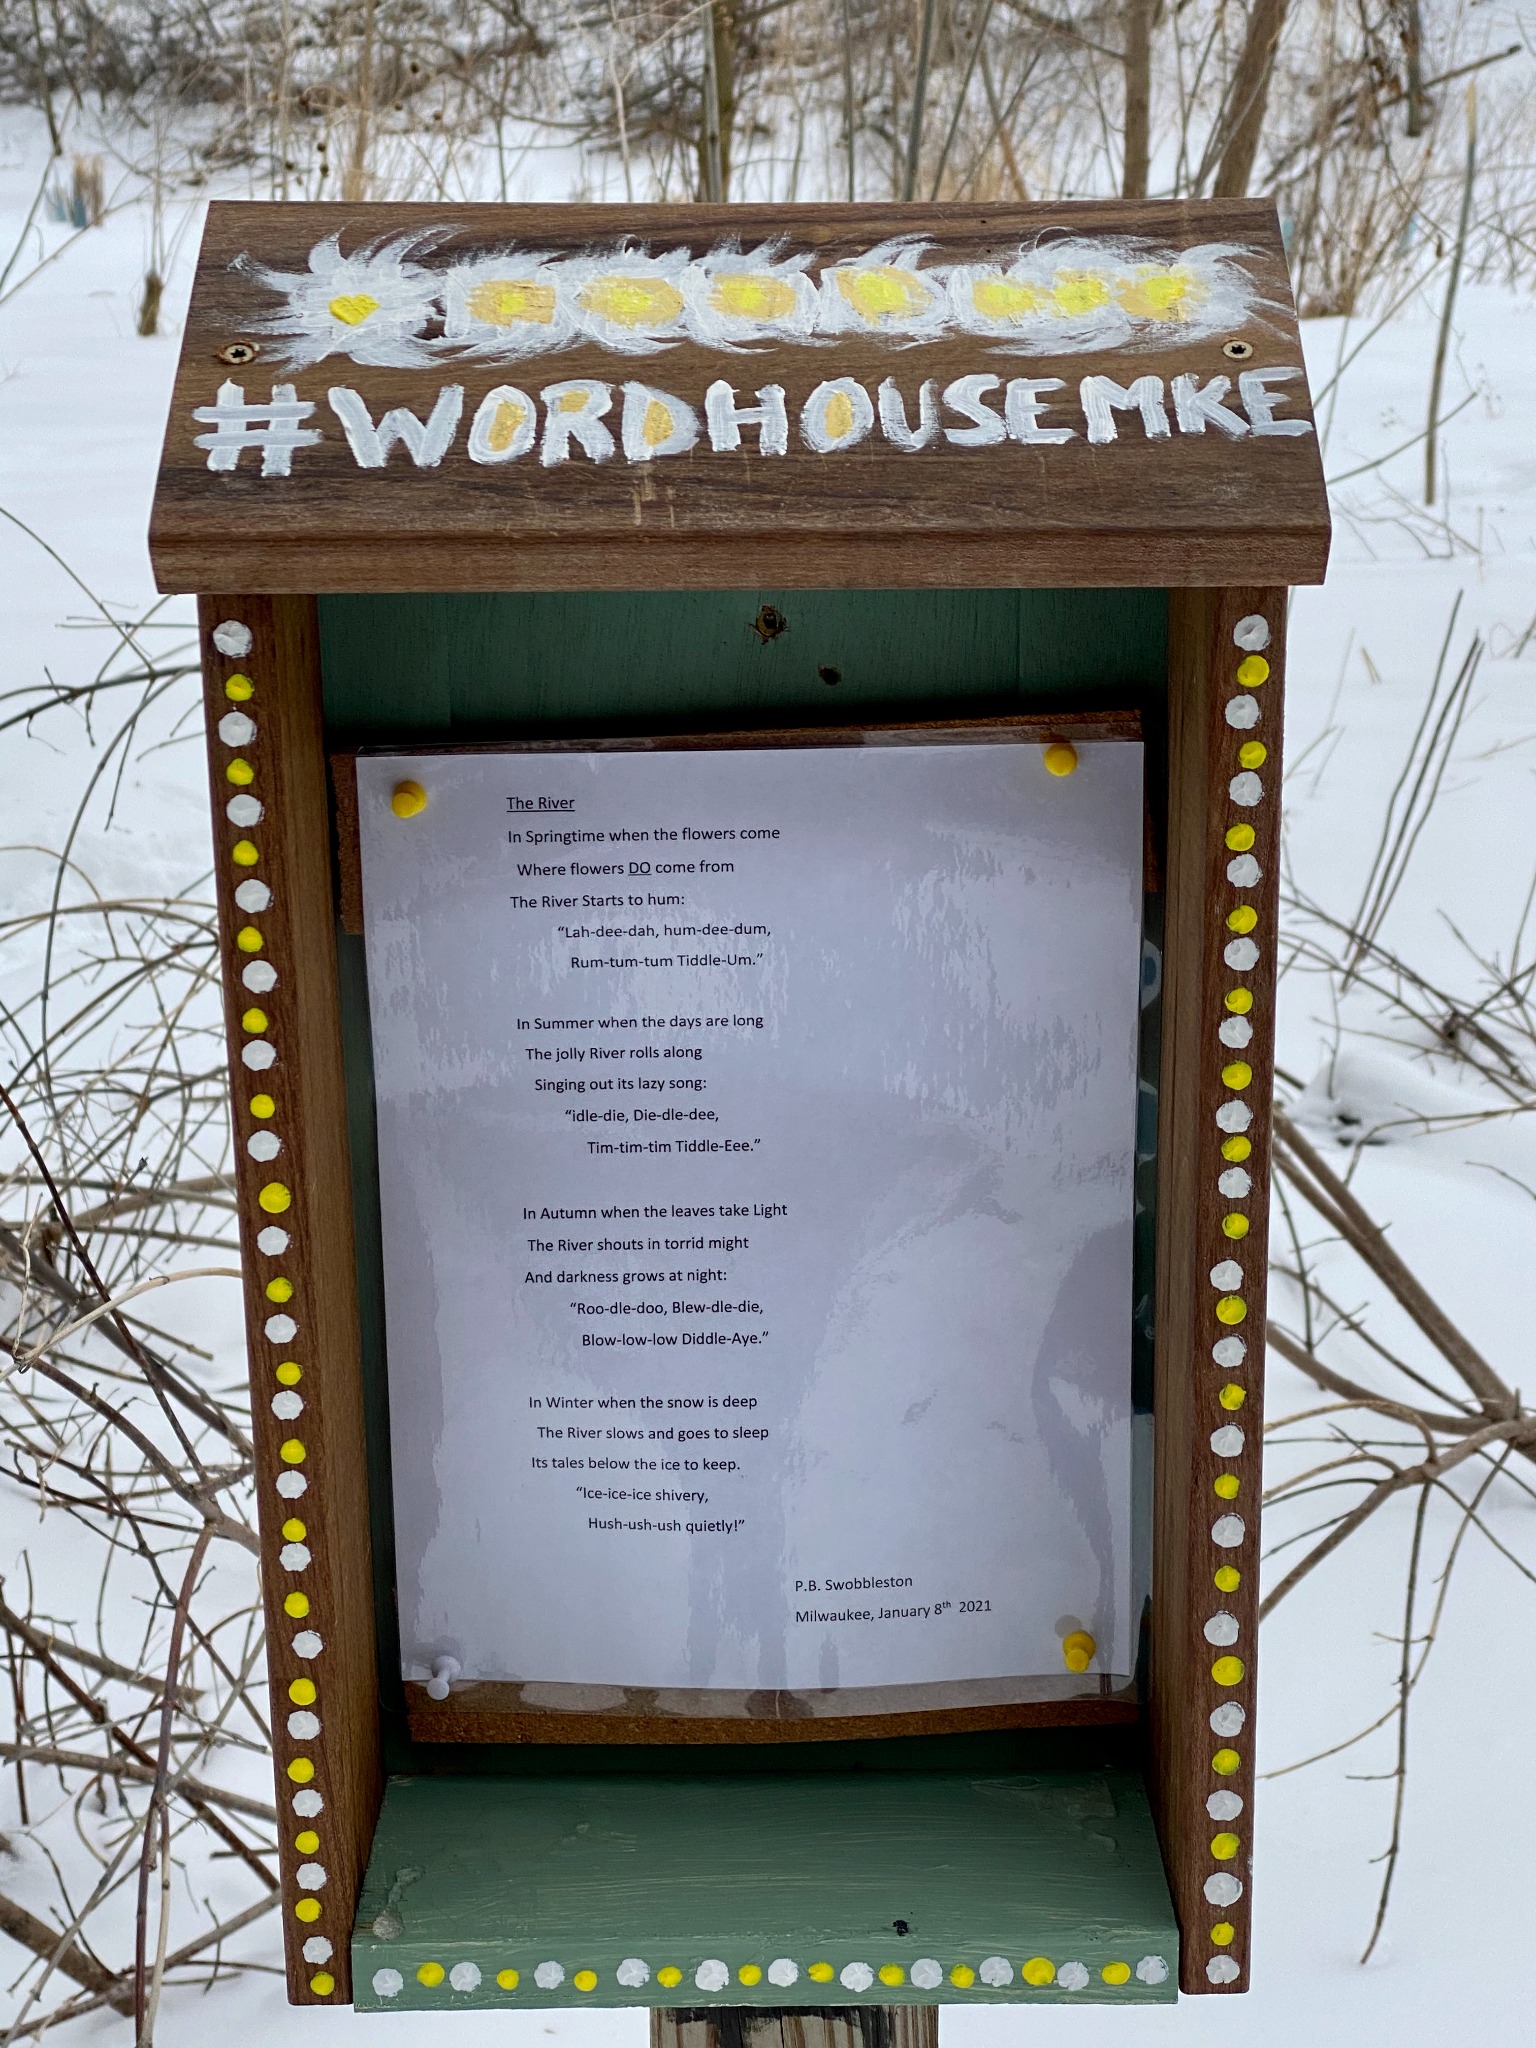 #WORDHOUSEMKE
The River
In Springtime when the flowers come
Where flowers DO come from
The River Starts to hum:
“Lah-dee-dah, hum-dee-dum,
Rum-tum-tum Tiddle-Um.”
In Summer when the days are long
The jolly River rolls along
Singing out its lazy song:
“idle-die, Die-dle-dee,
Tim-tim-tim Tiddle-Eee.”
In Autumn when the leaves take Light
The River shouts in torrid might
And darkness grows at night:
“Roo-dle-doo, Blew-dle-die,
Blow-low-low Diddle-Aye.”
In Winter when the snow is deep
The River slows and goes to sleep
Its tales below the ice to keep.
“Ice-ice-ice shivery,
Hush-ush-ush quietly!”
P.B. Swobbleston
Milwaukee, January 8th 2021